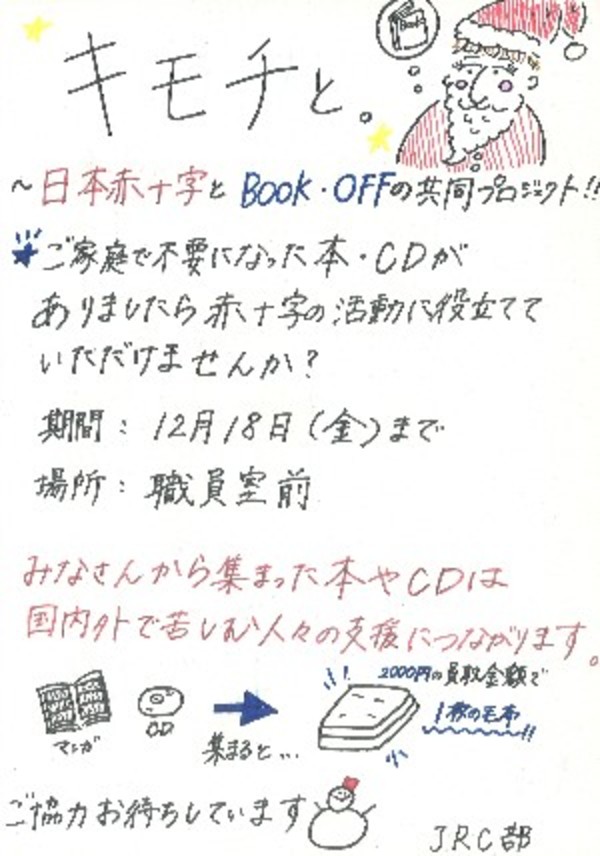 キモチと。
~日本赤十字とBOOK・OFFの共同プロジェクト!!
ご家庭で不要になった本・CDが
ありましたら赤十字の活動に役立てて
いただけませんか?
期間:12月18日(金)まで
場所:職員室前
みなさんから集まった本やCDは
国内外で苦しむ人々の支援につながります。
マンガ
CD
集まると...
2000円の買取金額で
1枚の毛布!!
ご協力お待ちしています
JRC部